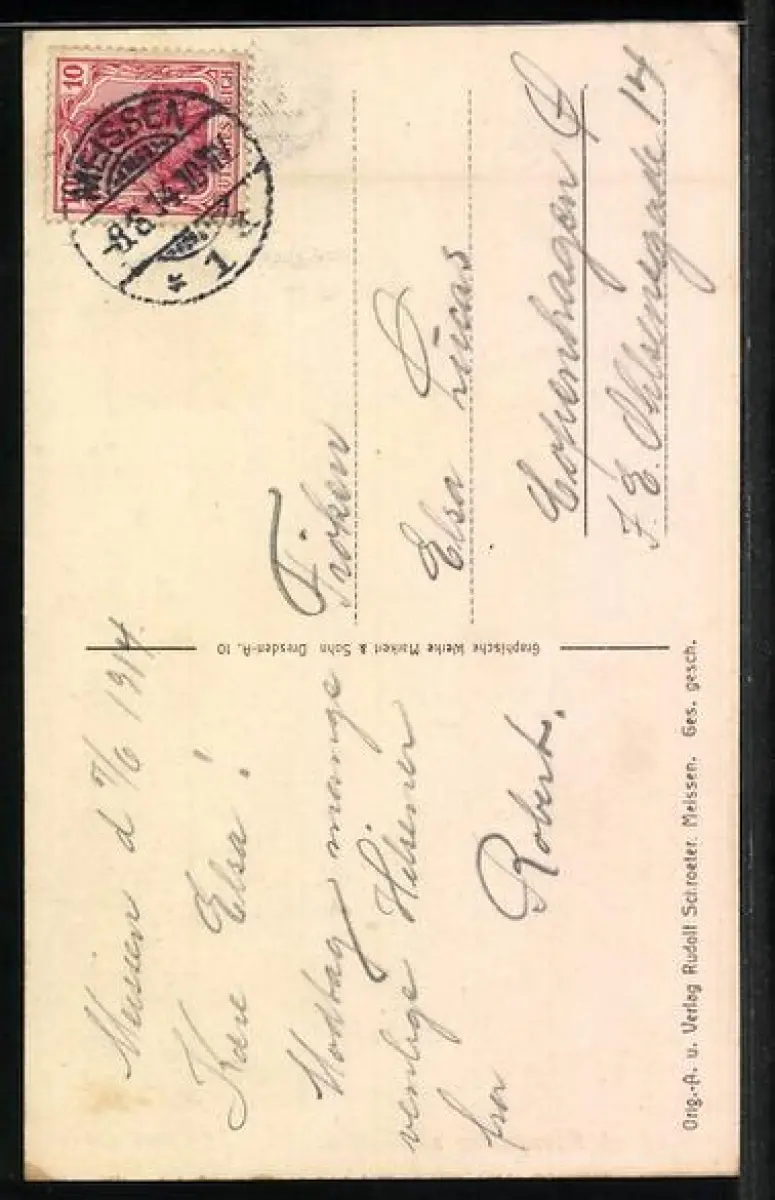 Meissen d 7/6 1914.
Kære Elsa!
Modtag mange
venlige Hilsener
fra
Robert.
Graphische Werke Markert & Sohn Dresden-A. 10
10
MEISSEN
-8.6.14.10-11V
* 1 *
Fröken
Elsa Lucas
Copenhagen
J. E. Ohlsensgade 14
Orig.-A. u. Verlag Rudolf Schroeter. Meissen. Ges. gesch.